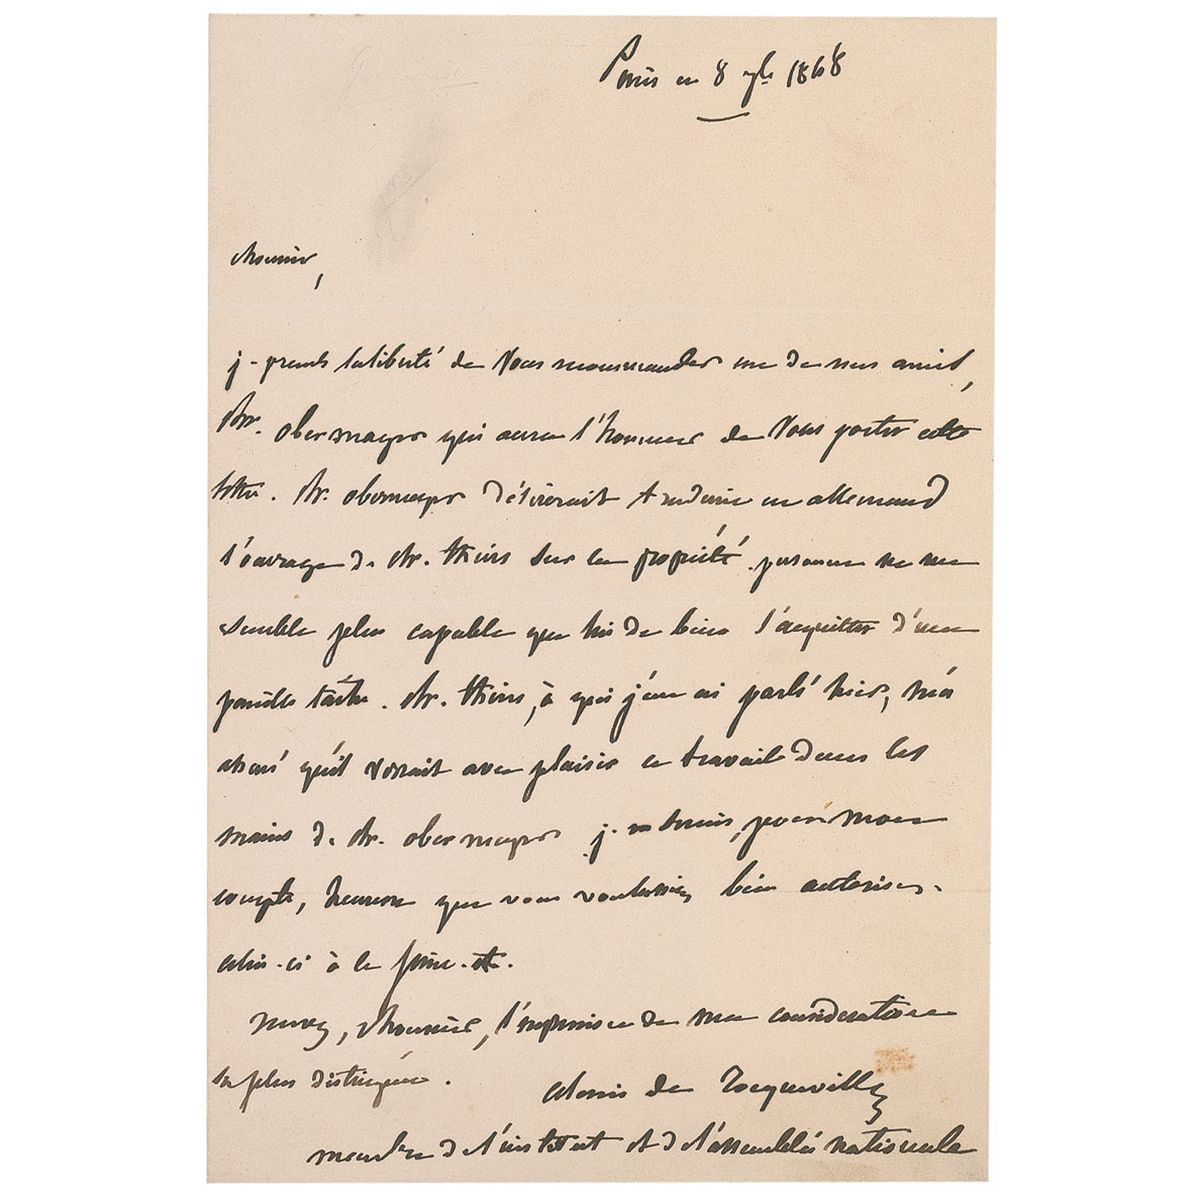 Paris ce 8 9bre 1848
Monsieur,
je prends la liberté de vous recommander un de mes amis,
Mr. obermayer qui aura l'honneur de vous porter cette
lettre. Mr. obermayer désirerait traduire en allemand
l'ouvrage de Mr. thiers sur la propriété. personne ne me
semble plus capable que lui de bien s'acquitter d'une
pareille tâche. Mr. thiers, à qui j'en ai parlé hier, m'a
assuré qu'il verrait avec plaisir ce travail dans les
mains de Mr. obermayer. je serais, pour mon
compte, heureux que vous voulussiez bien autoriser
celui-ci à le faire.
recevez, Monsieur, l'expression de ma considération
la plus distinguée.
alexis de Tocqueville
membre de l'institut et de l'assemblée nationale